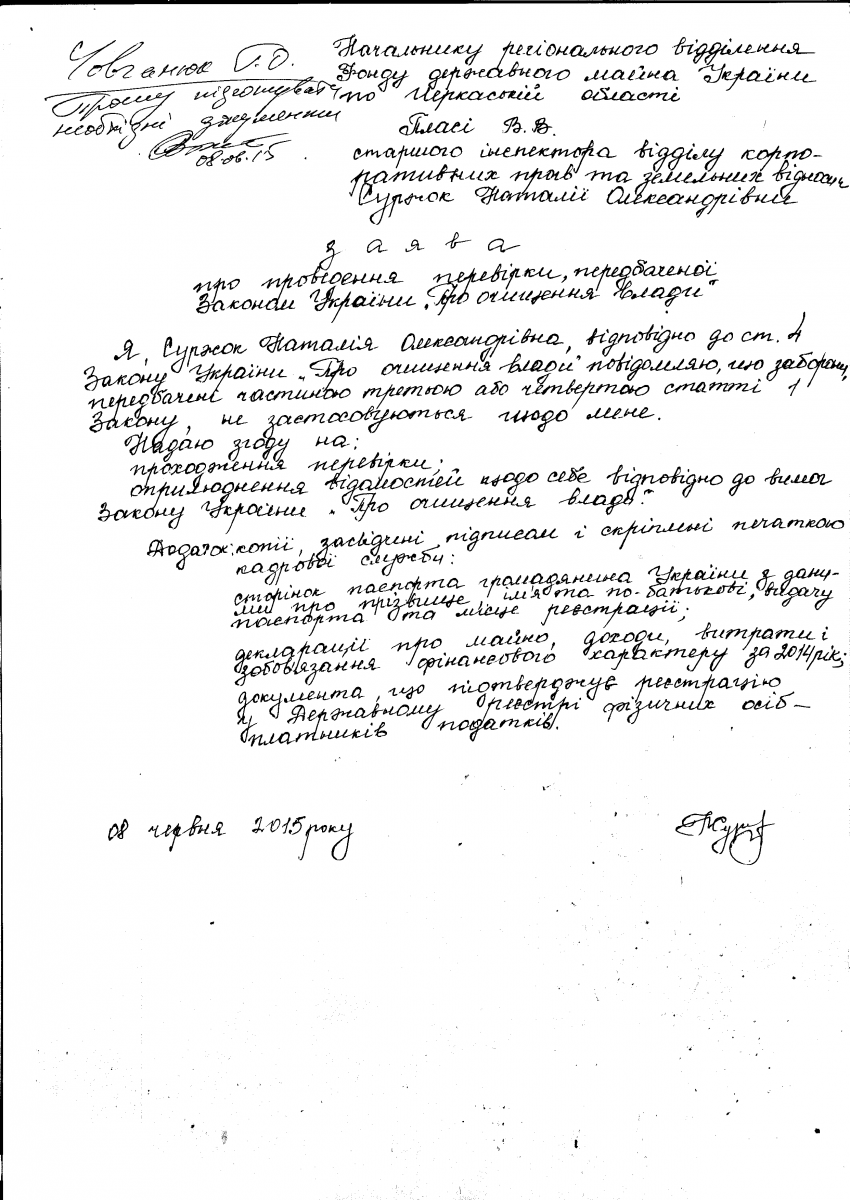 Човганюк Г.О.
Прошу підготувати
необхідні документи
08.06.15
Начальнику регіонального відділення
Фонду державного майна України
по Черкаській області
Пласі В.В.
старшого інспектора відділу корпо-
ративних прав та земельних відносин
Суржок Наталії Олександрівни
заява
про проведення перевірки, передбаченої
Законом України „Про очищення влади"
Я, Суржок Наталія Олександрівна, відповідно до ст. 4
Закону України „Про очищення влади" повідомляю, що заборони,
передбачені частиною третьою або четвертою статті 1
Закону, не застосовуються щодо мене.
Надаю згоду на:
проходження перевірки;
оприлюднення відомостей щодо себе відповідно до вимог
Закону України „Про очищення влади".
Додаток: копії, засвідчені підписом і скріплені печаткою
кадрової служби:
сторінок паспорта громадянина України з дани-
ми про прізвище, ім'я та по-батькові, видачу
паспорта та місце реєстрації;
декларації про майно, доходи, витрати і
зобов'язання фінансового характеру за 2014 рік;
документа, що підтверджує реєстрацію
у Державному реєстрі фізичних осіб –
платників податків.
08 червня 2015 року